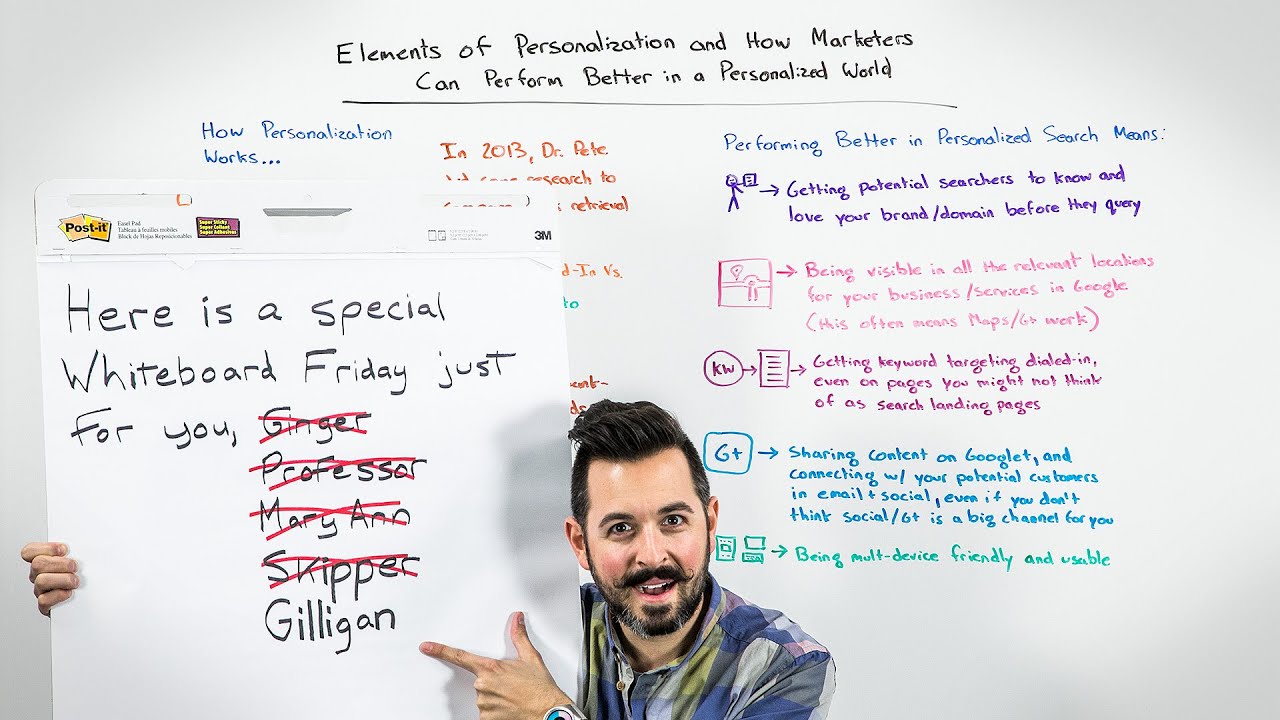 Elements of Personalization and How Marketers
Can Perform Better in a Personalized World
How Personalization
Works...
In 2013, Dr. Pete
research to
retrieval
d-In Vs.
to
Post-it
Easel Pad
Tableau à feuilles mobiles
Block de Hojas Reposicionables
Super Sticky
Super Collant
Super Adhesivas
3M
Here is a special
Whiteboard Friday just
for you, Ginger
Professor
Mary Ann
Skipper
Gilligan
Performing Better in Personalized Search Means:
Getting potential searchers to know and
love your brand/domain before they query
Being visible in all the relevant locations
for your business/services in Google
(this often means Maps/G+ work)
KW
Getting keyword targeting dialed-in,
even on pages you might not think
of as search landing pages
G+
Sharing content on Google+, and
connecting w/ your potential customers
in email + social, even if you don't
think social/G+ is a big channel for you
Being mult-device friendly and usable